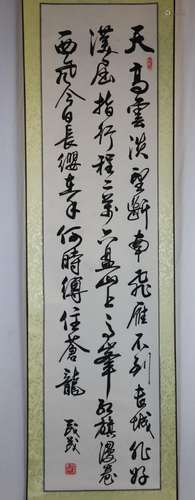 天高雲淡望斷南飛雁不到長城非好
漢屈指行程二萬六盤山上高峯紅旗漫卷
西風今日長纓在手何時縛住蒼龍